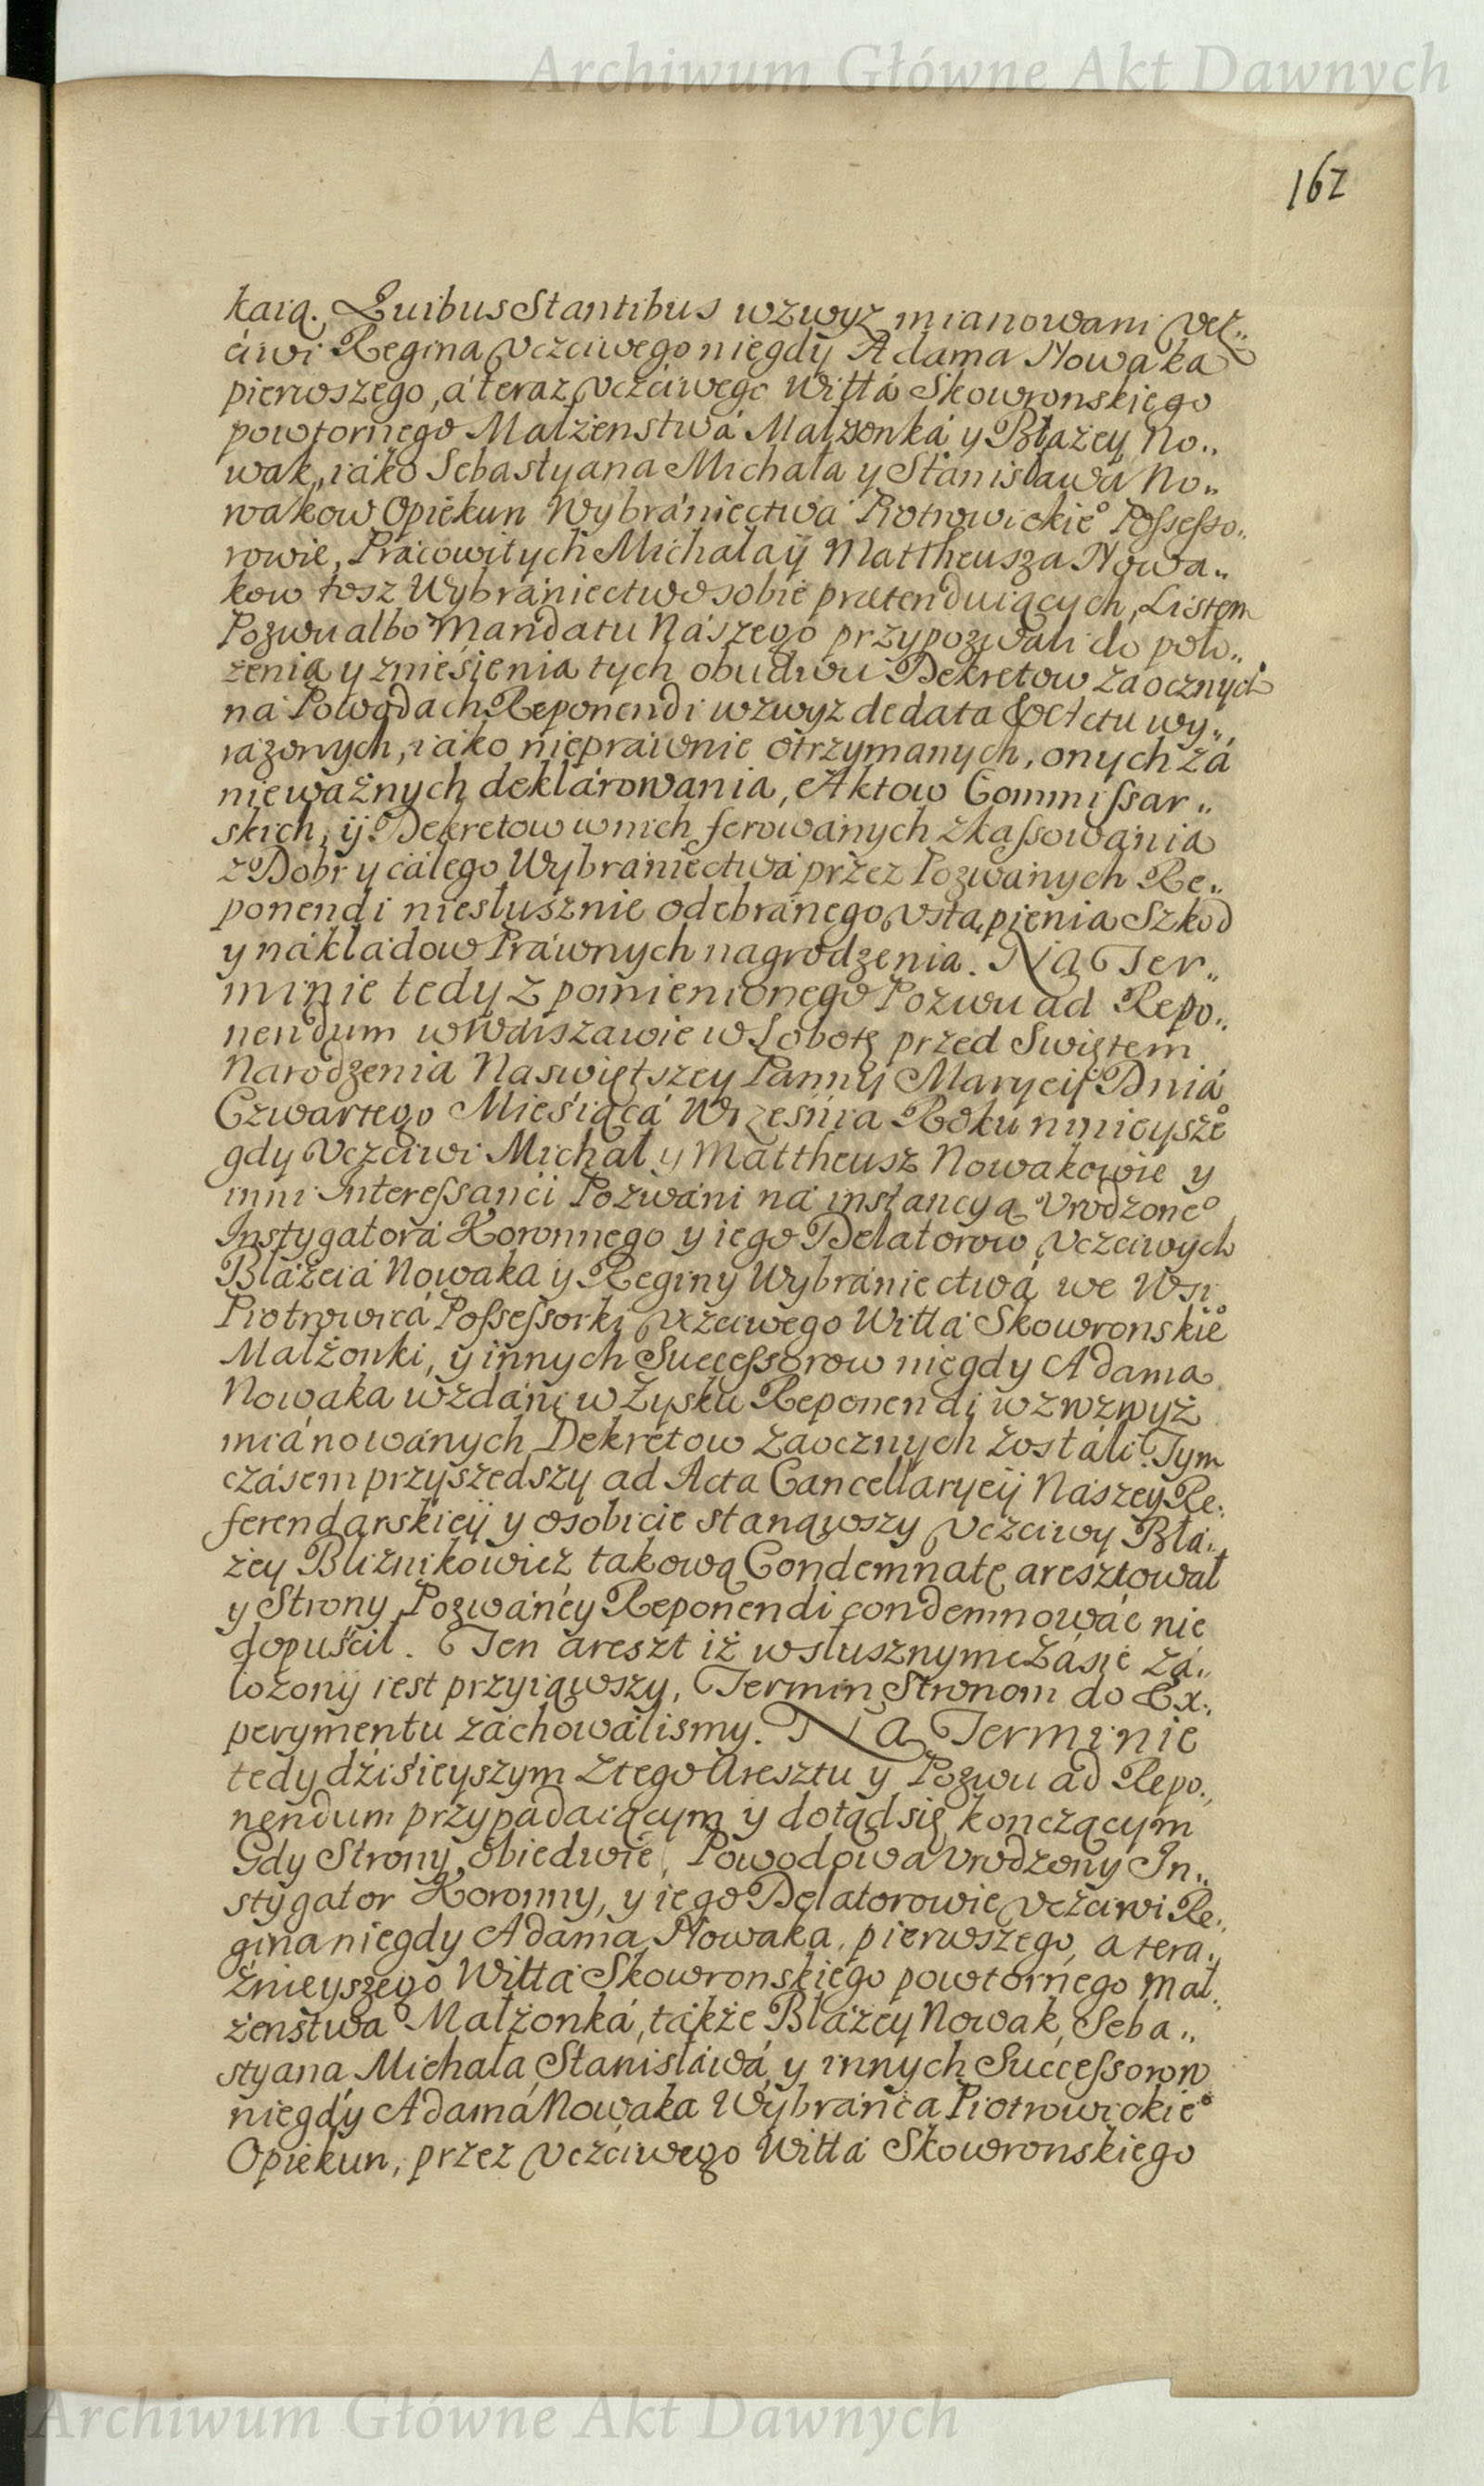 Archiwum Główne Akt Dawnych
162
kaią. Quibus Stantibus wzwyz mianowani Vcz„
ćiwi Regina Vczciwego niegdy Adama Nowaka
pierwszego, á teraz Vczciwego Wittá Skowronskiego
powtornego Malżenstwá Malzonká y Błażey No„
wak, iáko Sebastyana Michałá y Stanisłáwá No„
wakow Opiekun Wybrániectwá Piotrowickie° Possesso„
rowie, Prácowitych Michałá ÿ Mattheusza Nowa„
kow tosz Wybrániectwo sobie prætenduiących, Listem
Pozwu albo Mandatu Nászego przypozwáli do poło„
żenia y znieśienia tych obudwu Dekretow Záocznych
ná Powodách Reponendi wzwyż de data & Actu wy„
rażonych, iáko niepráwnie otrzymánych, onych zá
nieważnych deklárowania, Aktow Commissar„
skich, ÿ Dekretow w nich ferowánych zkassowánia
z Dobr y cáłego Wybrániectwá przez Pozwánych Re„
ponendi niesłusznie odebránego Vstąpienia Szkod
y nákładow Práwnych nagrodzenia. Ná Ter„
minie tedy z pomienionego Pozwu ad Repo„
nendum w Wárszawie w Sobotę przed Swiętem
Narodzenia Naswiętszey Panny Marycij Dniá
Czwartego Mieśiącá Września Roku ninieysze°
gdy Vczciwi Michał y Mattheusz Nowakowie y
inni Interessánci Pozwáni ná instáncyą Vrodzone°
Instygatorá Koronnego y iego Delatorow Vczciwych
Błażeiá Nowaka y Reginy Wybrániectwá we Wsi
Piotrowicá Possessorki Vczciwego Wittá Skowronskie°
Małżonki, y innych Successorow niegdy Adama
Nowaka wzdáni w Zysku Reponendi wzwzwyż
miánowánych Dekretow Záocznych zostáli. Tym
czásem przyszedszy ad Acta Cancellaryeij NászeyRe„
ferendarskieij y osobiście stanąwszy Vczciwy Błá„
żey Bliznikowicz takową Condemnatę aresztował
y Strony Pozwáney Reponendi condemnowáć nie
dopuśćił. Ten areszt iż w słusznym czáśie zá„
łożonÿ iest przyiąwszy, Termin Stronom do Ex„
perymentu záchowáliśmy. Ná Terminie
tedy dźiśieyszym z tego Aresztu y Pozwu ad Repo„
nendum przypádaiącym y dotąd się kończącym
Gdy Strony obiedwie, Powodowa Vrodzony In„
stygator Koronny, y iego Delatorowie Vczciwi Re„
gina niegdy Adama Nowaka, pierwszego, a tera„
źnieyszego Wittá Skowronskiego powtornego Mał„
żeństwa Małżonká, tákże Błażey Nowak, Seba„
styana Michałá, Stanisłáwá, y innych Successorow
niegdy Adamá Nowaka Wybráńca Piotrowickie°
Opiekun, przez Vczciwego Wittá Skowronskiego
Archiwum Główne Akt Dawnych